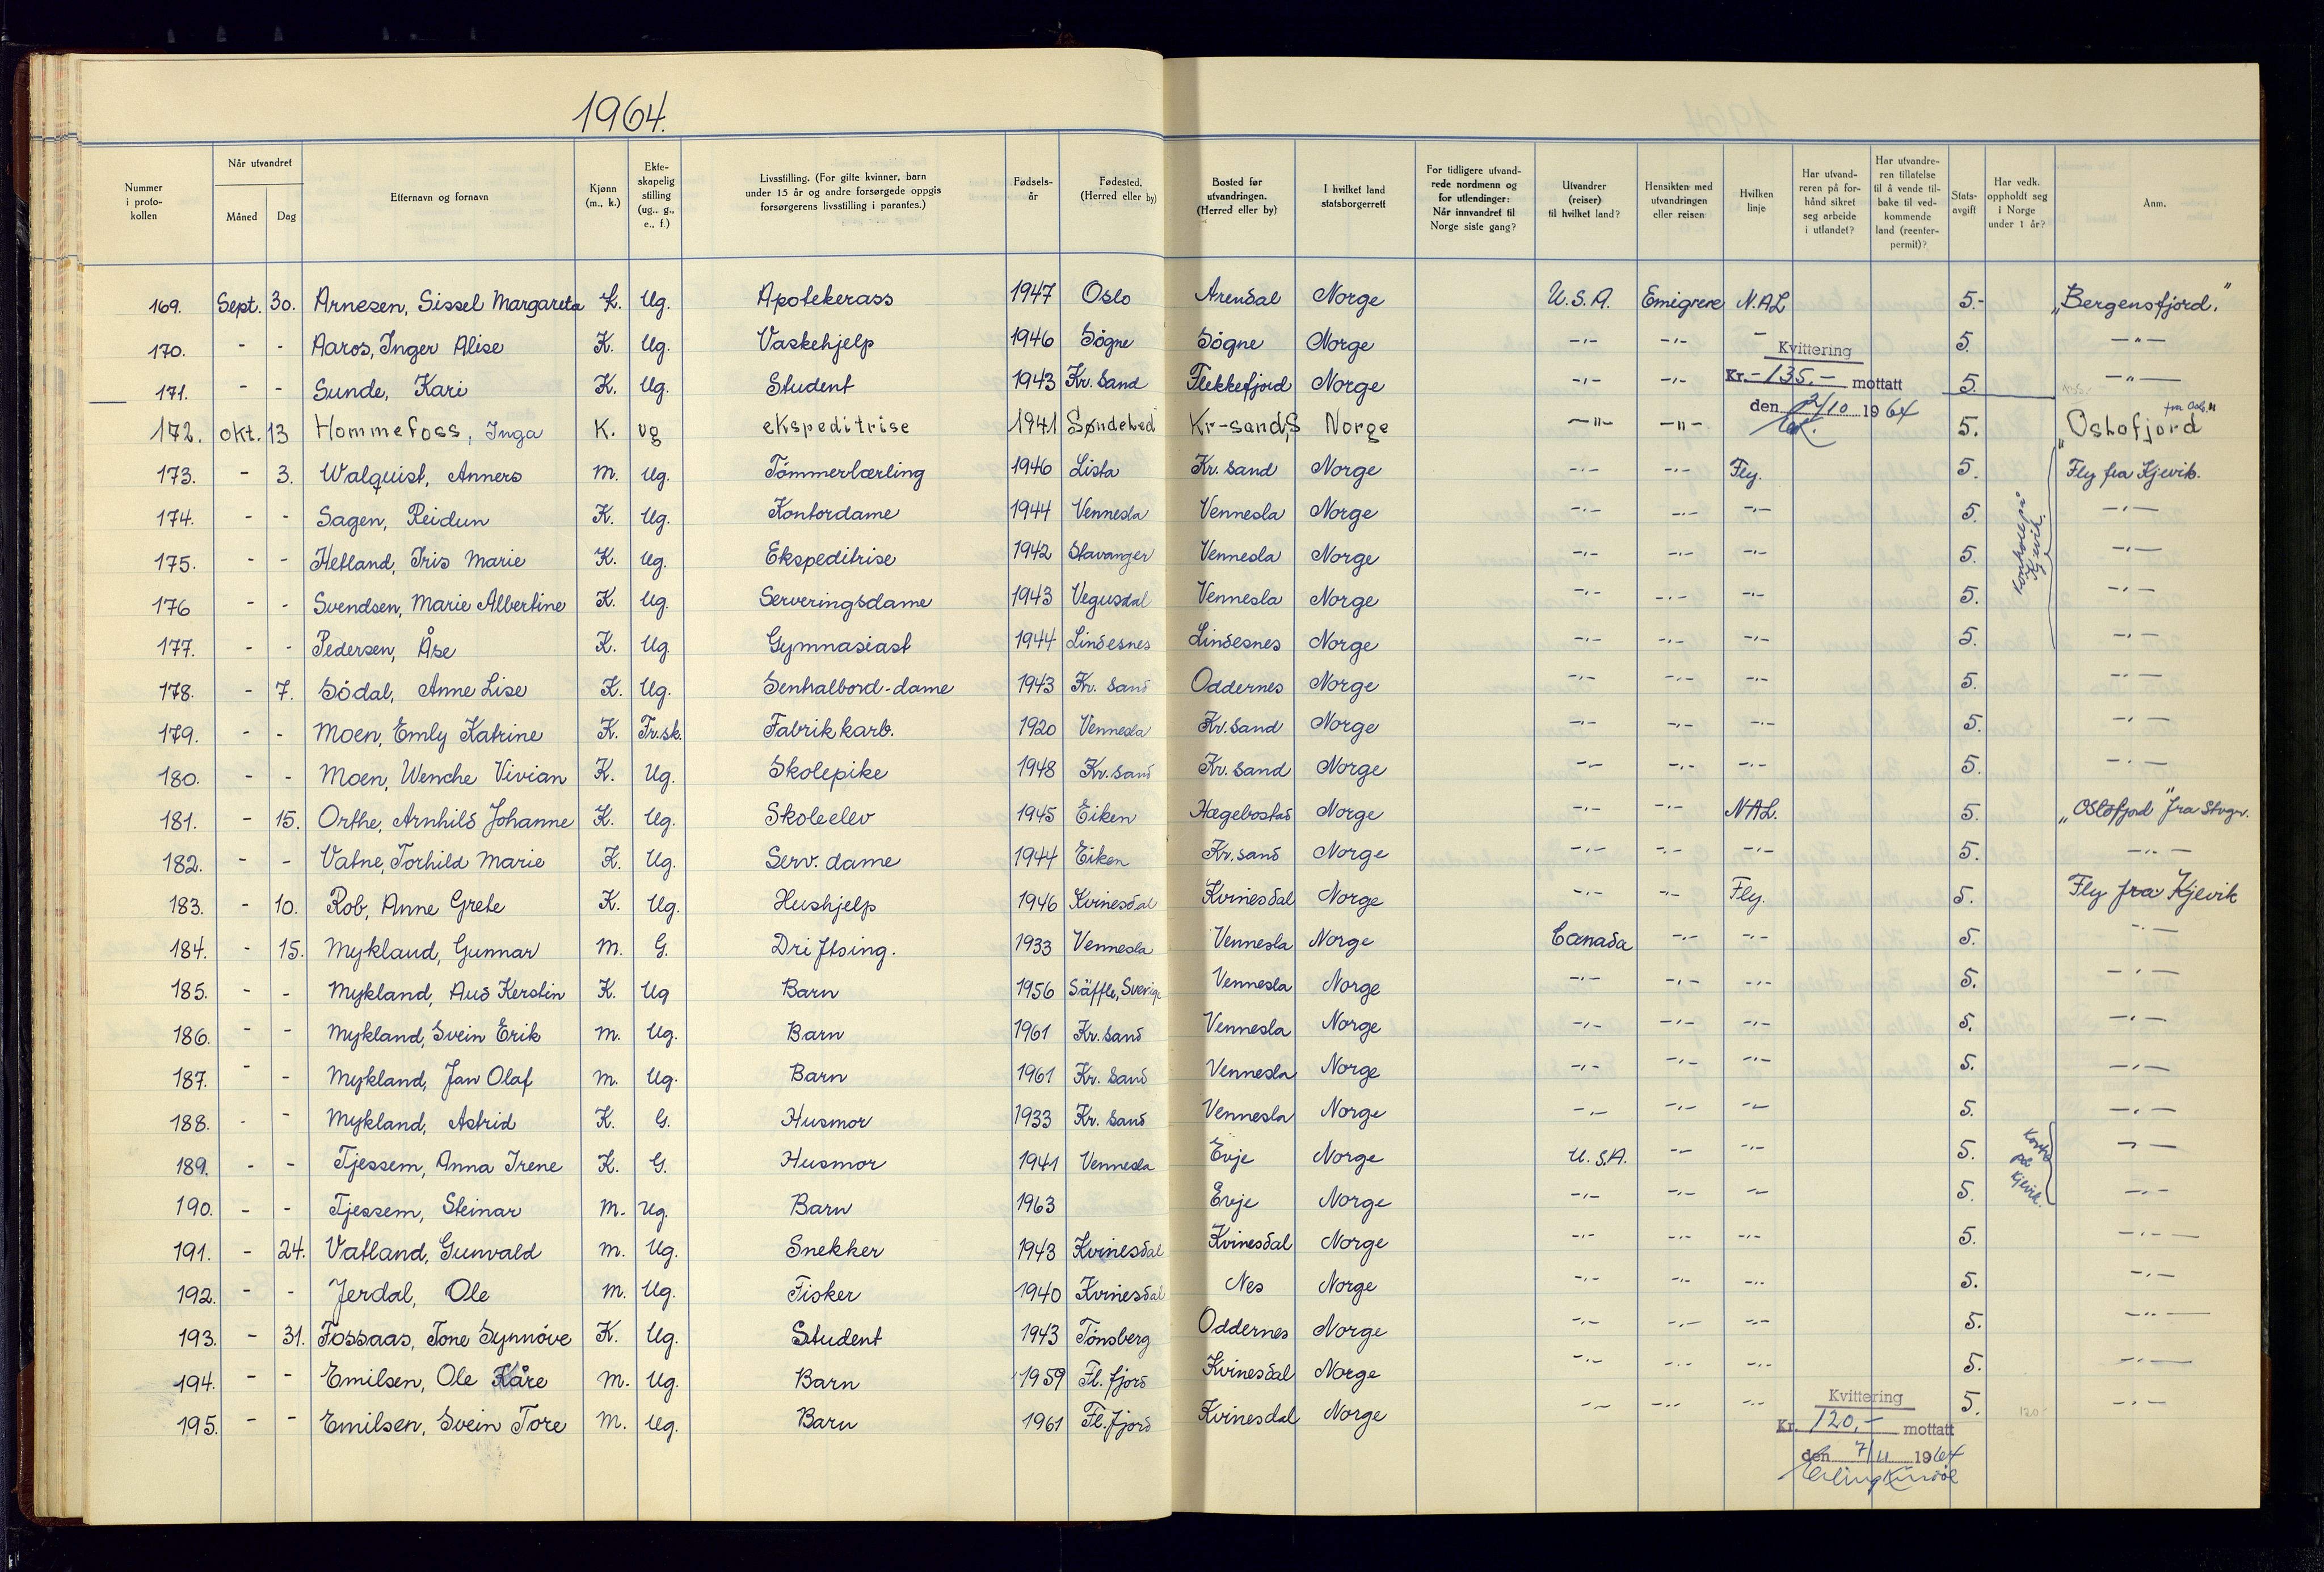 1964.
Nummer i protokollen | Når utvandret Måned Dag | Etternavn og fornavn | Kjønn (m., k.) | Ekteskapelig stilling (ug., g., e., f.) | Livsstilling. (For gifte kvinner, barn under 15 år og andre forsørgede oppgis forsørgerens livsstilling i parantes.) | Fødselsår | Fødested. (Herred eller by) | Bosted før utvandringen. (Herred eller by) | I hvilket land statsborgerrett | For tidligere utvandrede nordmenn og for utlendinger: Når innvandret til Norge siste gang? | Utvandrer (reiser) til hvilket land? | Hensikten med utvandringen eller reisen | Hvilken linje | Har utvandreren på forhånd sikret seg arbeide i utlandet? | Har utvandreren tillatelse til å vende tilbake til vedkommende land (reenterpermit)? | Statsavgift | Har vedk. oppholdt seg i Norge under 1 år? | Anm.
169. Sept. 30. Arnesen, Sissel Margareta K. Ug. Apotekerass 1947 Oslo Arendal Norge U.S.A. Emigrere N.A.L 5.- „Bergensfjord."
170. - - Aaros, Inger Alise K. Ug. Vaskehjelp 1946 Søgne Søgne Norge -"- -"- - 5. -"-
Kvittering
171. - - Sunde, Kari K. Ug. Student 1943 Kr. Sand Flekkefjord Norge -"- -"- 5. -"-
Kr. -135.- mottatt
den 2/10 1964
172. okt. 13 Hommefoss, Inga K. ug ekspeditrise 1941 Søndeled Kr-sand,S Norge -"- -"- 5. „Oslofjord" fra Oslo
173. - 3. Walquist, Anners M. Ug. Tømmerlærling 1946 Lista Kr. Sand Norge -"- -"- Fly. 5. Fly fra Kjevik.
174. - - Sagen, Reidun K. Ug. Kontordame 1944 Vennesla Vennesla Norge -"- -"- -"- 5. -"-
Kontroll på Kjevik
175. - - Hetland, Iris Marie K. Ug. Ekspeditrise 1942 Stavanger Vennesla Norge -"- -"- -"- 5. -"-
176 - - Svendsen, Marie Albertine K. Ug. Serveringsdame 1943 Vegusdal Vennesla Norge -"- -"- -"- 5. -"-
177. - - Pedersen, Åse K. Ug. Gymnasiast 1944 Lindesnes Lindesnes Norge -"- -"- -"- 5. -"-
178. - 7. Sødal, Anne Lise K. Ug. Sentralbord-dame 1943 Kr. Sand Oddernes Norge -"- -"- -"- 5. -"-
179. - - Moen, Emly Katrine K. Fr.sk. Fabrikkarb. 1920 Vennesla Kr. Sand Norge -"- -"- -"- 5. -"-
180. - - Moen, Wenche Vivian K. Ug. Skolepike 1948 Kr. Sand Kr. Sand Norge -"- -"- -"- 5. -"-
181. - 15. Orthe, Arnhild Johanne K. Ug. Skoleelev 1945 Eiken Hægebostad Norge -"- -"- NAL. 5. „Oslofjord" fra Stvgr.
182. - - Vatne, Torhild Marie K. Ug. Serv. dame 1944 Eiken Kr. Sand Norge -"- -"- -"- 5. -"-
183. - 10. Rob, Anne Grete K. Ug. Hushjelp 1946 Kvinesdal Kvinesdal Norge -"- -"- Fly. 5. Fly fra Kjevik
184. - 15. Mykland, Gunnar M. G. Driftsing. 1933 Vennesla Vennesla Norge Canada -"- -"- 5. -"-
185. - - Mykland, Aud Kerstin K. Ug Barn 1956 Säffle, Sverige Vennesla Norge -"- -"- -"- 5. -"-
186. - - Mykland, Svein Erik M. Ug. Barn 1961 Kr. Sand Vennesla Norge -"- -"- -"- 5. -"-
187. - - Mykland, Jan Olaf M. Ug. Barn 1961 Kr. Sand Vennesla Norge -"- -"- -"- 5. -"-
188. - - Mykland, Astrid K. G. Husmor 1933 Kr. Sand Vennesla Norge -"- -"- -"- 5. -"-
189. - - Tjessem, Anna Irene K. G. Husmor 1941 Vennesla Evje Norge U.S.A. -"- -"- 5. -"-
på Kjevik.
190. - - Tjessem, Steinar M. Ug. Barn 1963 Evje Norge -"- -"- -"- 5. -"-
191. - 24. Vatland, Gunvald M. Ug. Snekker 1943 Kvinesdal Kvinesdal Norge -"- -"- -"- 5. -"-
192. - - Jerdal, Ole M. Ug. Fisker 1940 Kvinesdal Nes Norge -"- -"- -"- 5. -"-
193. - 31. Fossaas, Tone Synnöve K. Ug. Student 1943 Tönsberg Oddernes Norge -"- -"- -"- 5. -"-
194. - - Emilsen, Ole Kåre M. Ug. Barn 1959 Fl. fjord Kvinesdal Norge -"- -"- -"- 5. -"-
195. - - Emilsen, Svein Tore M. Ug. Barn 1961 Fl. fjord Kvinesdal Norge -"- -"- -"- 5. 120.- -"-
Kvittering
Kr. 120,- mottatt
den 7/11 1964